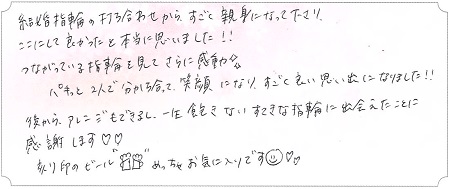 結婚指輪の打ち合わせから、すごく親身になって下さり、
ここにして良かったと本当に思いました!!
つながっている指輪を見てさらに感動。
パキッと2人で分かち合って、笑顔になり、すごく良い思い出になりました!!
後から、アレンジもできるし、一生飽きないすてきな指輪に出会えたことに
感謝します♡♡
刻印のビール"🍻"めっちゃお気に入りです☺♡♡